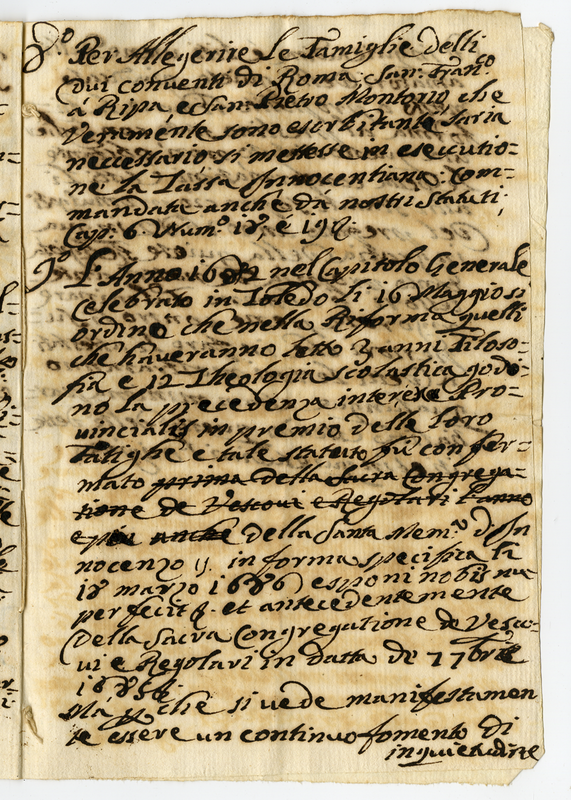 8.º Per Allegerire Le Famiglie delli
Dui conventi di Roma San: Fran.co
á Ripa e San Pietro Montorio, che
veraménte sono esorbitante, saria
neccessario si mettesse in esecutio=
ne La Tassa Innocentiana: Com=
mandata anche dà nostri Statuti,
Cap: 6 Num.º 18, é 19
9.º L'Anno 1682 nel Capitolo Generale
Celebrato in Toledo li 16 Maggio si
ordinò che nella Riforma quelli
che haveranno letto 3 anni Filoso=
fia e 12 Theologia scolastica godo=
no La precedenza inter Pro=
uincialis in premio delle loro
Fatighe e tale statuto fù confer=
mato prima della Sacra Congrega=
tione de Vescoui e Regolari l'anno
e poi anche della Santa Mem.a d'In
nocenzo 11. in forma specifica li
18 marzo 1686 esponi nobis nu=
per fecit &. et antecedentemente
Della Sacra Congregatione de Vesco=
ui e Regolari in datta de 7 7bre
1685.
Ma che si uede manifestamen
te essere un continuo fomento di
inquietudine